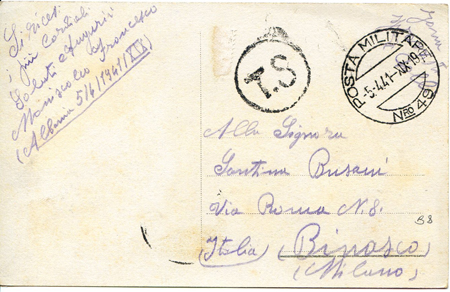 Si vicet
i più cordiali
Saluti e Auguri
Francesco
(Albania 5/4/1941/XIX)
T.S
POSTA MILITARE
-5.4.41-XIX-19
NRO 49
Alla Signora
Santina Busani
Via Roma N.8.
(Italia) Binasco
(Milano)